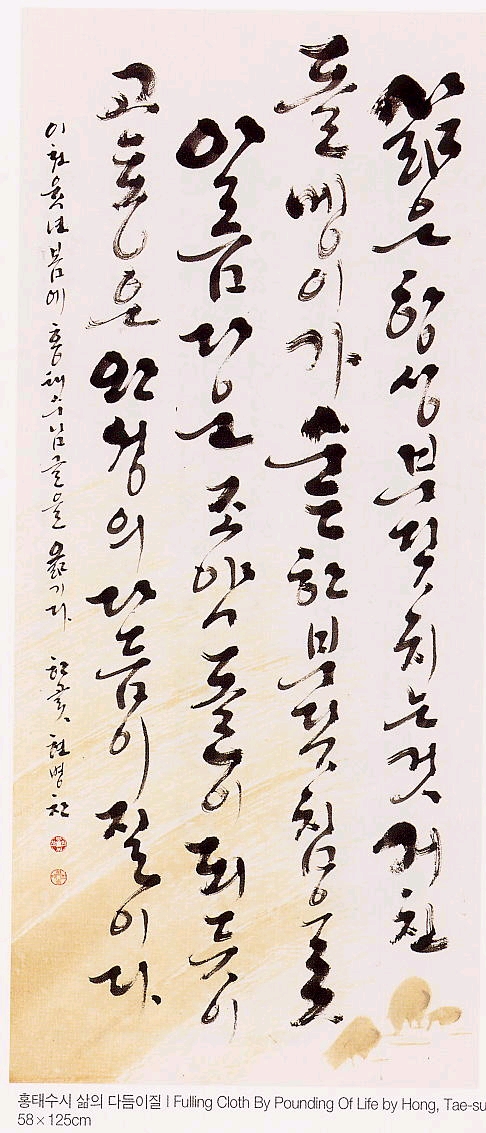 삶은 항상 부딪치는것 거친
돌멩이가 숱한 부딪침으로
아름다운 조약돌이 되듯이
고통은 완성의 다듬이질이다
이천 년 봄에 홍태수님 글을 옮기다 현병찬
홍태수시 삶의 다듬이질 | Fulling Cloth By Pounding Of Life by Hong, Tae-su
58×125cm